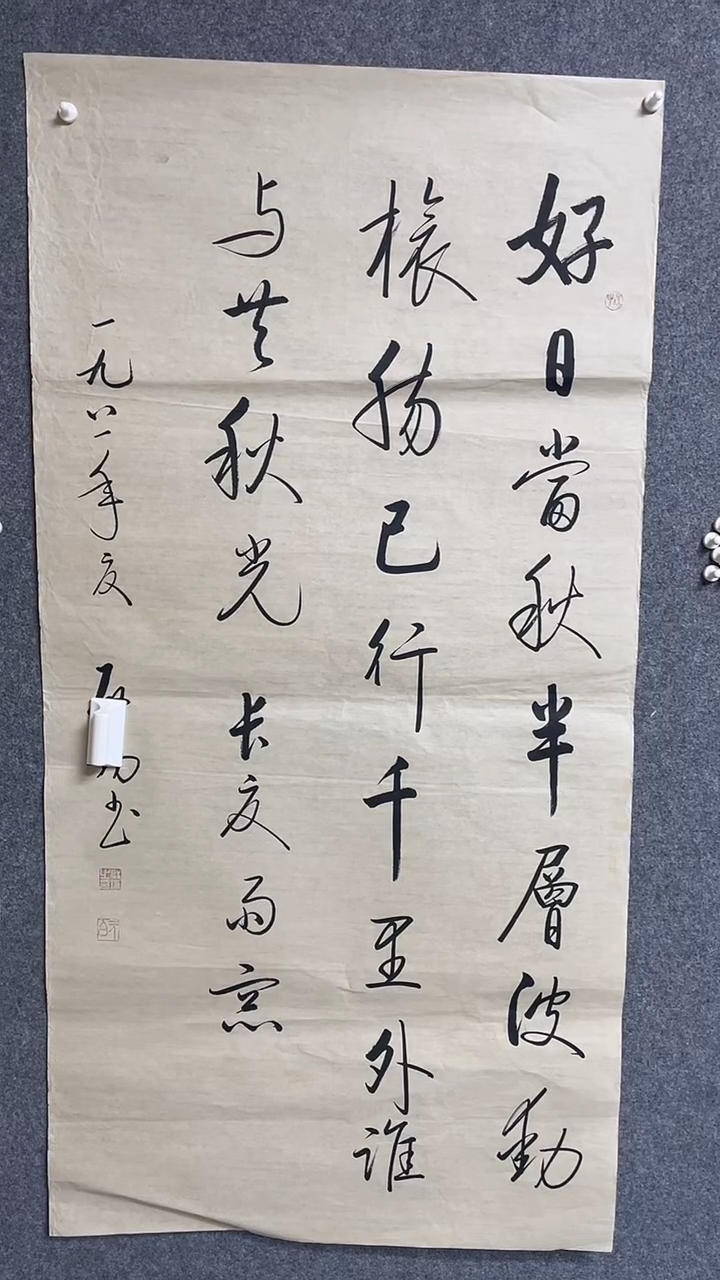 好日當秋半層波動
旅肠已行千里外誰
与共秋光 长夏雨窓
一九八一年夏 书